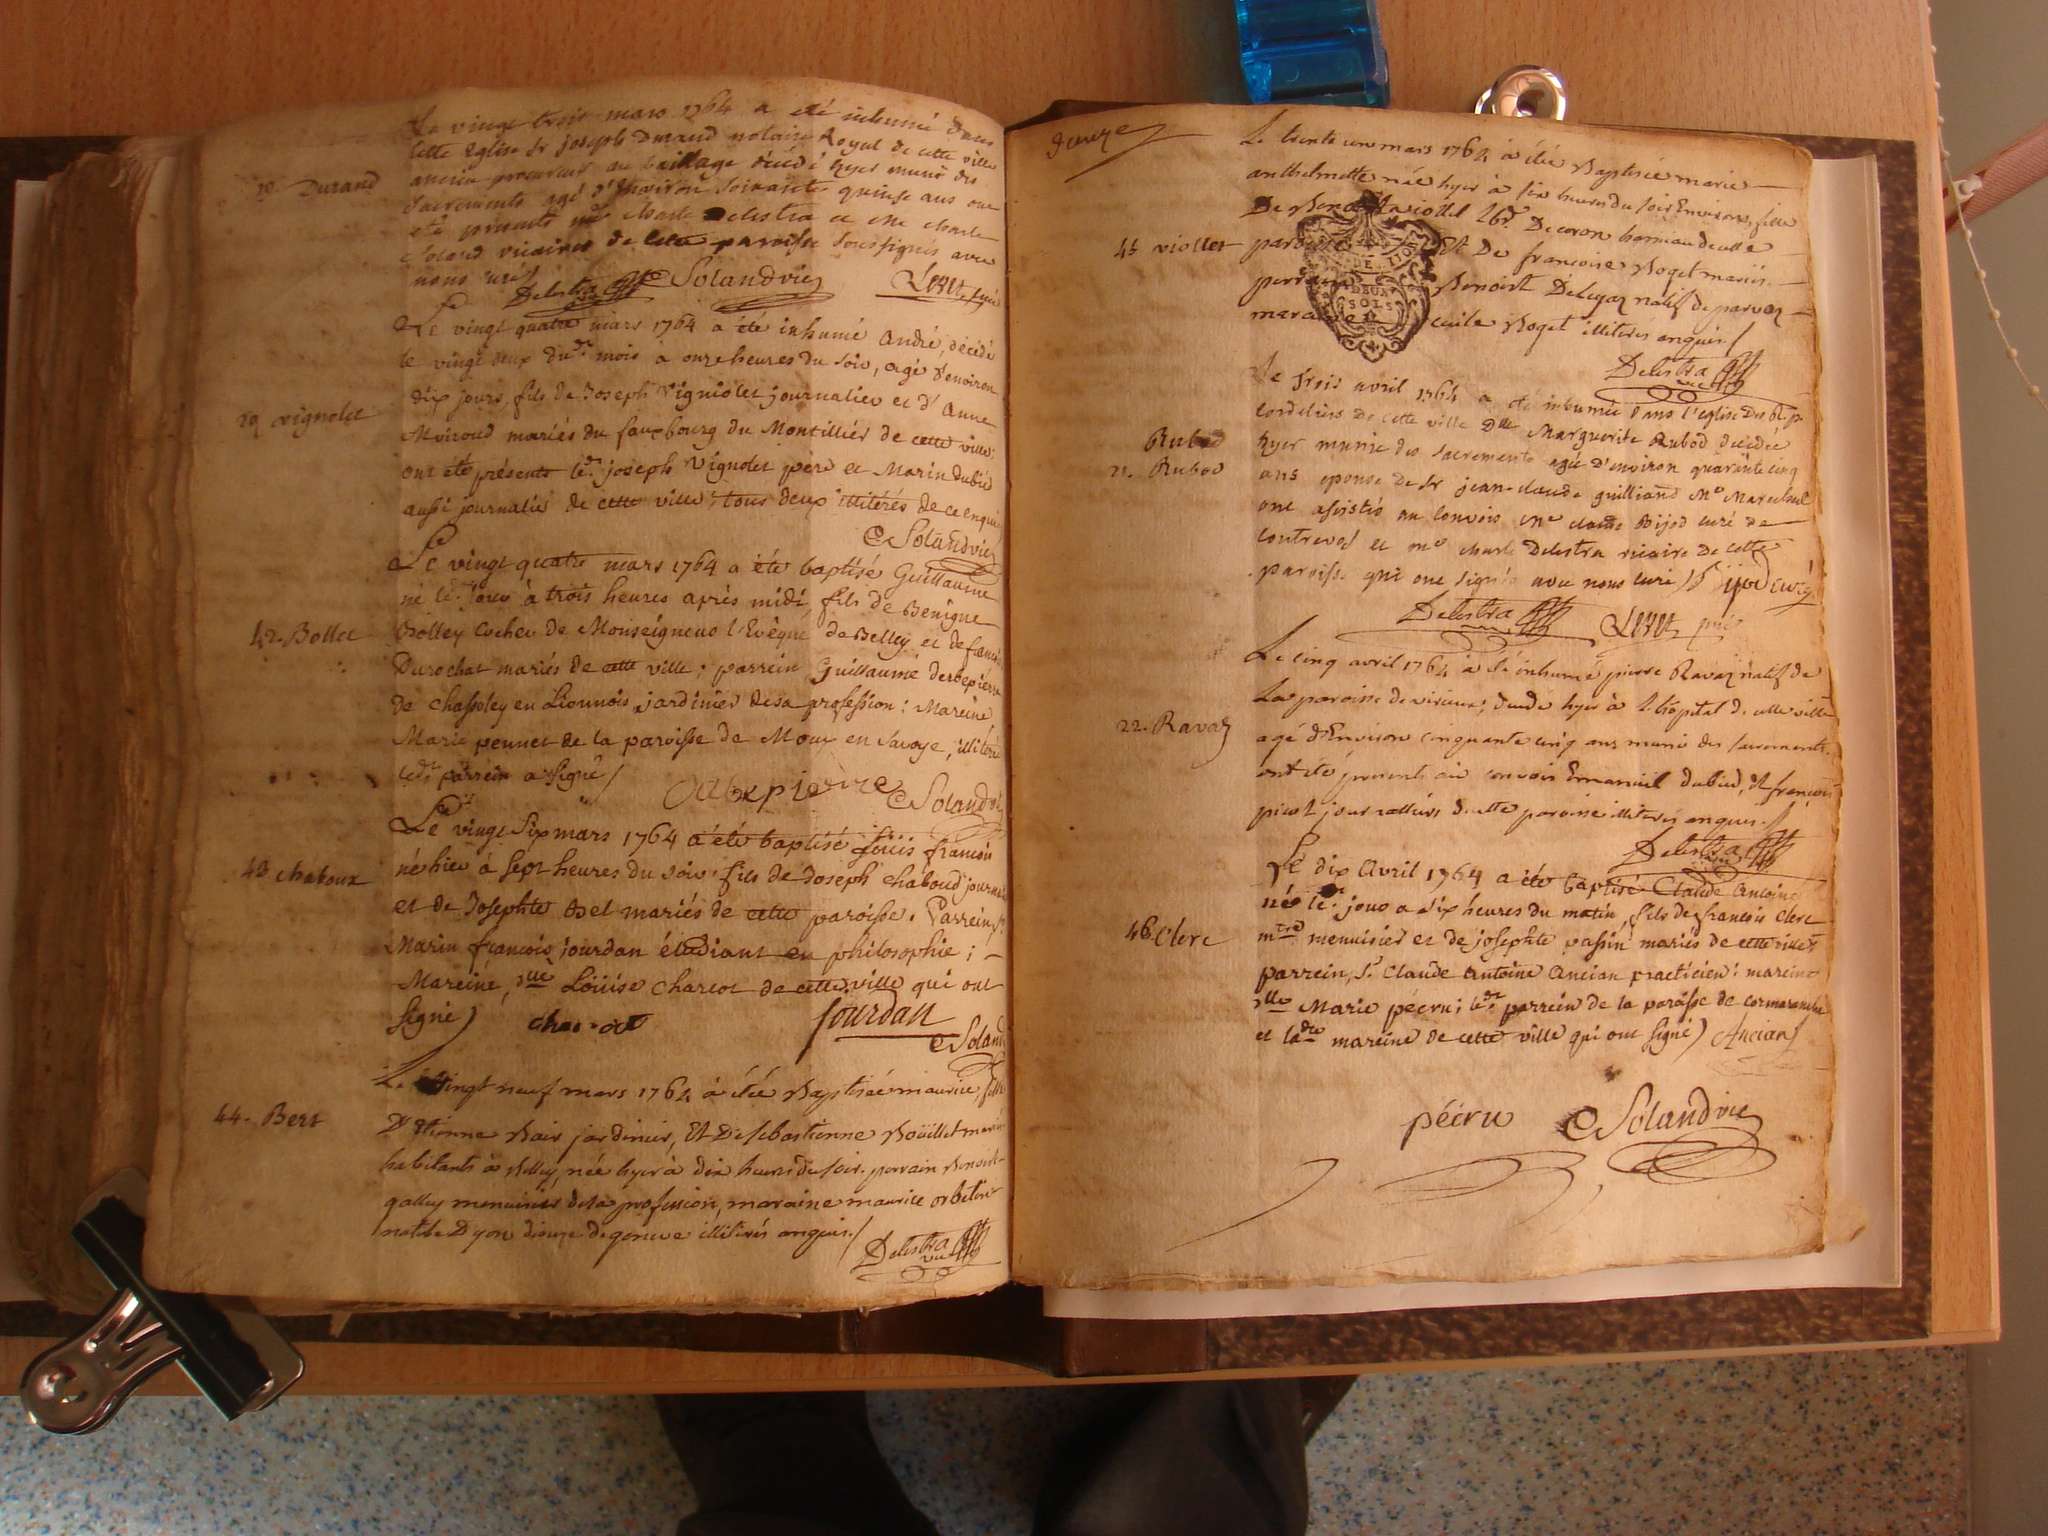 Le vingt trois mars 1764 a été inhumé dans
cette Eglise Sr joseph Durand notaire Royal de cette ville
ancien procureur au baillage décédé hyer munis des
20 Durand
sacrements agé d'Environ soixante quinze ans ont
été presents mre charle Delestra et Mre charle
Soland vicaires de cette paroisse soussignés avec
nous curé
Delestra vic CSoland vic curé
Le vingt quatre mars 1764 a été inhumé André, décédé
le vingt deux dudt mois à onze heures du soir, agé d'environ
dix jours, fils de Joseph Vigniolet journalier et d'Anne
vignolet
Miroud mariés du fauxbourg du Montillier de cette ville:
ont été présents led. joseph Vignolet père et Marin dubié
aussi journalier de cette ville tous deux illitérés de ce enqui
CSoland vic
Le vingt quatre mars 1764 a été baptisé Guillaume
né led. jour à trois heures après midi, fils de Benigne
42. Bollet
Bolley cocher de Monseigneur l'Evêque de Belley et de
Durochat mariés de cette ville; parrein Guillaume derbepierre
de chassoley en Lionnois, jardinier de sa profession: Mareine,
Marie pennet de la paroisse de Moux en Savoye, illitéré
ledt parrein a signé
CSoland vic
Le vingt six mars 1764 a été baptisé Louis françois
43 chaboux
né hier à sept heures du soir fils de Joseph chaboud
et de Josephte mariés de cette paroisse. Parrein, Sr
Marin françois jourdan étudiant en philosophie;
Mareiné, dlle Loüise charcot de cette ville qui ont
signé) charcot Jourdan
CSoland
Le vingt neuf mars 1764 à étée Baptisée maurice, fille
44. Bert
D'Etienne Bair jardinier, Et De sebastienne Boüillet mariés
habitants à Belley, née hyer à dix heures du soir. parrain Benoit
galley menuisier de sa profession, maraine maurice orbeton
native D'yon dioceze de geneve illitérés enquis./
Delestra vic
douze
Le trente un mars 1764 à étée Baptisée marie
anthelmette née hyer à six heures du soir Environ, fille
De Benoit viollet De coron hameau de cette
45 viollet
paroisse Et De francoise Roget mariés.
DE LIO
DEUX
SOLS
perrain Benoist Delegaz natif de parvez
maraine cecile Roget illiterés enquis./
Delestra vic
Le trois avril 1764 a été inhumée dans l'eglise des R. p.
cordeliers de cette ville Dlle Marguerite Rubod decedée
Rubod
21. Rubod
hyer munie des sacrements agée d'environ quarante cinq
ans epouse de Sr jean-claude guilliand Me Marechal
ont assistés au convois Mre claude Bijod curé de
contrevoz et mre charle Delestra vicaire de cette
paroisse qui ont signés avec nous curé) Bijod curé
Delestra vic curé
Le cinq avril 1764 à été inhumé pierre Ravaz natif de
La paroisse de virieux; decedé hyer à l'hopital de cette ville
22. Ravaz
agé d'Environ cinquante cinq ans munis des sacrements.
ont été presents au convois Emanuel dubied, et françois
picot jour nalliers de cette paroisse illiterés enquis./
Delestra vic
Le dix Avril 1764 a été baptisé Claude Antoine
né led. jour a six heures du matin, fils de françois clerc
46 Clerc
mtre menuisier et de josephte passin mariés de cette ville;
parrein, Sr Claude Antoine Ancian practicien: mareine
dlle Marie pécru; ledt parrein de la paroisse de cormaranche
et ladte mareine de cette ville qui ont signé) Ancian
pécru CSoland vic